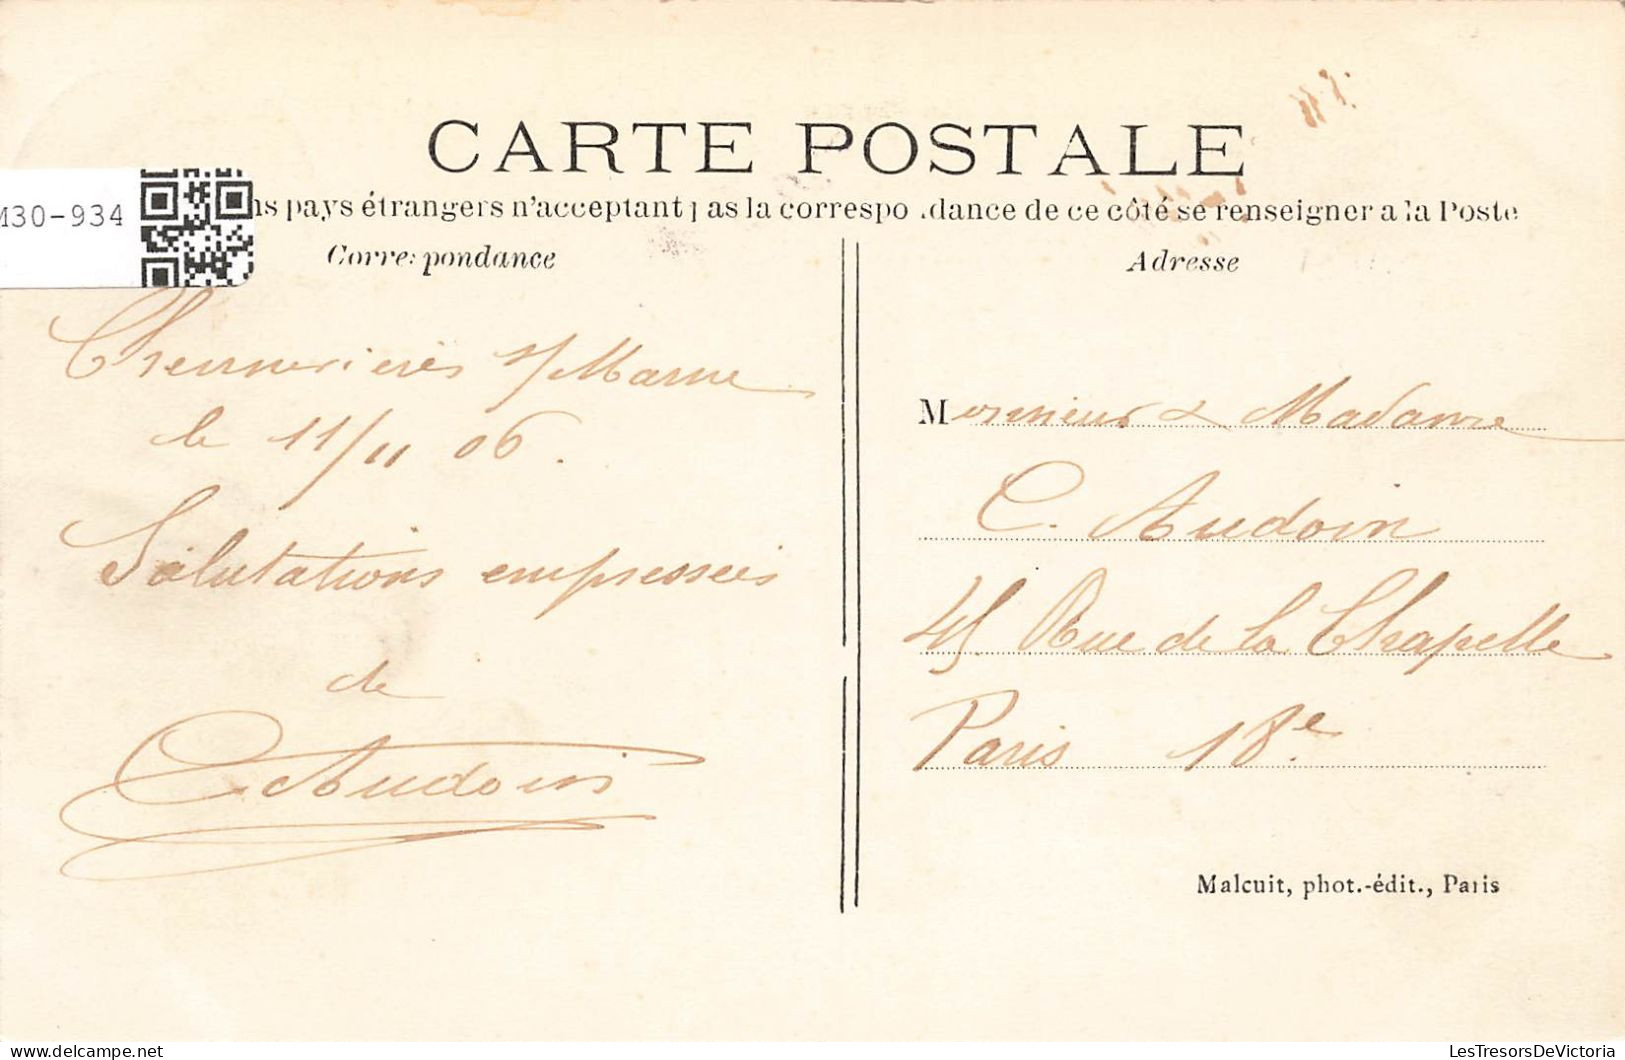 CARTE POSTALE
M30-934
ns pays étrangers n'acceptant pas la correspondance de ce côté se renseigner a la Poste
Correspondance
Adresse
Chennevières s/Marne
le 11/11 06.
Salutations empressées
de
C Audoin
Monsieur & Madame
C. Audoin
45 Rue de la Chapelle
Paris 18e.
Malcuit, phot.-édit., Paris
LesTresorsDeVictoria